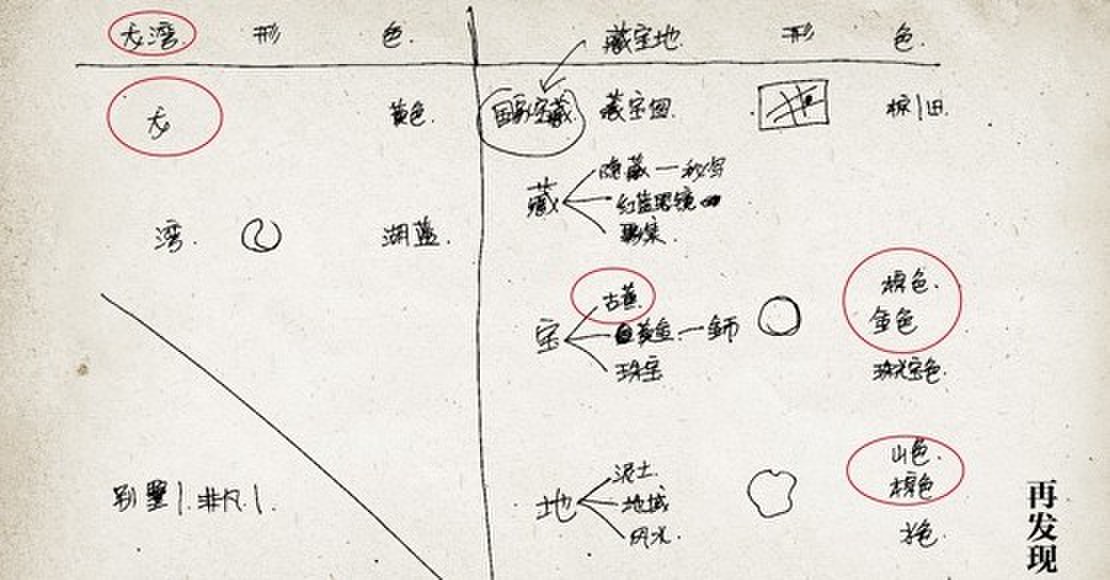 湾 形 色. 藏宝地 形 色.
黄色. 国家宝藏 藏宝图.
藏 隐藏一秘密
红蓝眼镜
影集.
湾. 湖蓝. 棕色.
宝 古董. 金色
黄金.一金币
珠宝 珠光宝色.
山色.
泥土 棕色
别墅 非凡 地 地域
风水.
再发现